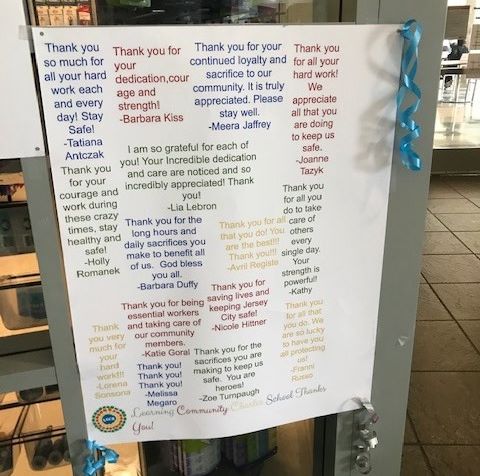 Thank you
so much for
all your hard
work each
and every
day! Stay
Safe!
-Tatiana
Antczak
Thank you for
your
dedication,cour
age and
strength!
-Barbara Kiss
Thank you for your
continued loyalty and
sacrifice to our
community. It is truly
appreciated. Please
stay well.
-Meera Jaffrey
Thank you
for all your
hard work!
We
appreciate
all that you
are doing
to keep us
safe.
-Joanne
Tazyk
I am so grateful for each of
you! Your Incredible dedication
and care are noticed and so
incredibly appreciated! Thank
you!
-Lia Lebron
Thank you
for your
courage and
work during
these crazy
times, stay
healthy and
safe!
-Holly
Romanek
Thank you for the
long hours and
daily sacrifices you
make to benefit all
of us. God bless
you all.
-Barbara Duffy
Thank you for all
that you do! You
are the best!!!
Thank you!!!
-Avril Registe
Thank you
for all you
do to take
care of
others
every
single day.
Your
strength is
powerful!!
-Kathy
Thank you for being
essential workers
and taking care of
our community
members.
-Katie Goral
Thank you for
saving lives and
keeping Jersey
City safe!
-Nicole Hittner
Thank you
for all that
you do. We
are so lucky
to have you
all protecting
us!
-Franni
Russo
Thank
you very
much for
your
hard
work!!!
-Lorena
Sonsona
Thank you!
Thank you!
Thank you!
-Melissa
Megaro
Thank you for the
sacrifices you are
making to keep us
safe. You are
heroes!
-Zoe Turnpaugh
Learning Community Charter School Thanks
You!